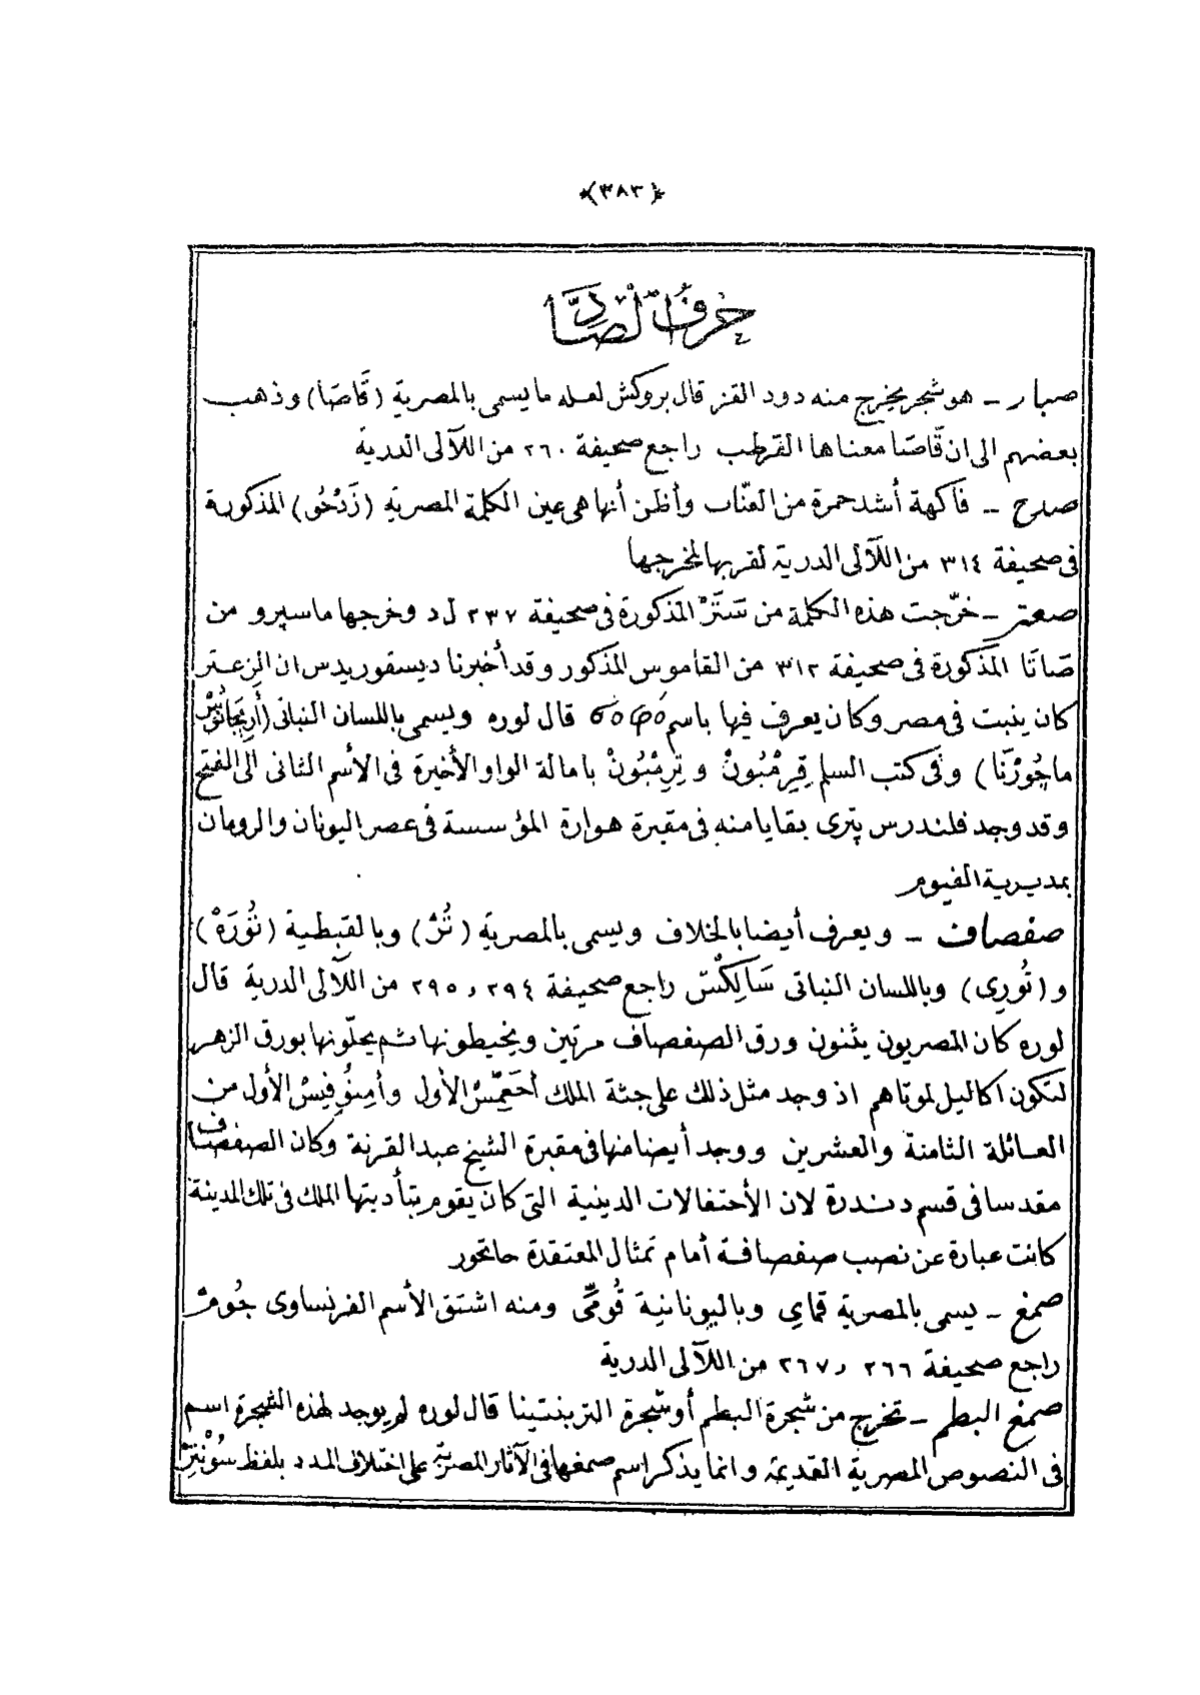 ﴿٣٨٣﴾
حرف الصاد
صبار – هو شجر يخرج منه دود القز قال بروكش لعله ما يسمى بالمصرية (قَاصَا) وذهب
بعضهم الى ان قَاصَا معناها القرطب راجع صحيفة ٢٦٠ من اللآلى الدرية
صدح – فاكهة أشد حمرة من العنّاب وأظن أنها هى عين الكلمة المصرية (زَدْحُو) المذكورة
فى صحيفة ٣١٤ من اللآلى الدرية لقربها لمخرجها
صعتر – خرّجت هذه الكلمة من سَتَرْ المذكورة فى صحيفة ٢٣٧ ل د وخرجها ماسپرو من
صَاتَا المذكورة فى صحيفة ٣١٢ من القاموس المذكور وقد أخبرنا ديسقوريدس ان الزعتر
كان ينبت فى مصر وكان يعرف فيها باسم قال لوره ويسمى باللسان النباتى (أُرِيجَانُومْ
ماجُورْنَا) وفى كتب السلم قِرِمْبُونْ و تِرِمْبُونْ بامالة الواو الأخيرة فى الأسم الثانى الى الفتح
وقد وجد فلندرس پترى بقايا منه فى مقبرة هوارة المؤسسة فى عصر اليونان والرومان
بمديرية الفيوم
صفصاف – ويعرف أيضا بالخلاف ويسمى بالمصرية (تُرْ) وبالقبطية (تُورَهْ)
و (تُورِى) وباللسان النباتى سَالِكْسْ راجع صحيفة ٢٩٤ و ٢٩٥ من اللآلى الدرية قال
لوره كان المصريون يثنون ورق الصفصاف مرتين ويخيطونها ثم يحلّونها بورق الزهر
لتكون اكاليل لموتاهم اذ وجد مثل ذلك على جثة الملك أحَعِمْسْ الأول وأمِنُوفِيسْ الأول من
العائلة الثامنة والعشرين ووجد أيضا منها فى مقبرة الشيخ عبد القرنة وكان الصفصاف
مقدسا فى قسم دندرة لان الأحتفالات الدينية التى كان يقوم بتأديتها الملك فى تلك المدينة
كانت عبارة عن نصب صفصافة أمام تمثال المعتقدة حاتحور
صمغ – يسمى بالمصرية قماى وباليونانية قُومِّى ومنه اشتق الأسم الفرنساوى جُومْ
راجع صحيفة ٢٦٦ و ٢٦٧ من اللآلى الدرية
صمغ البطم – تخرج من شجرة البطم أو شجرة التربنتينا قال لوره لم يوجد لهذه الشجرة اسم
فى النصوص المصرية القديمة وانما يذكر اسم صمغها فى الآثار المصرية على اختلاف المدد بلفظ سُونْتِرْ